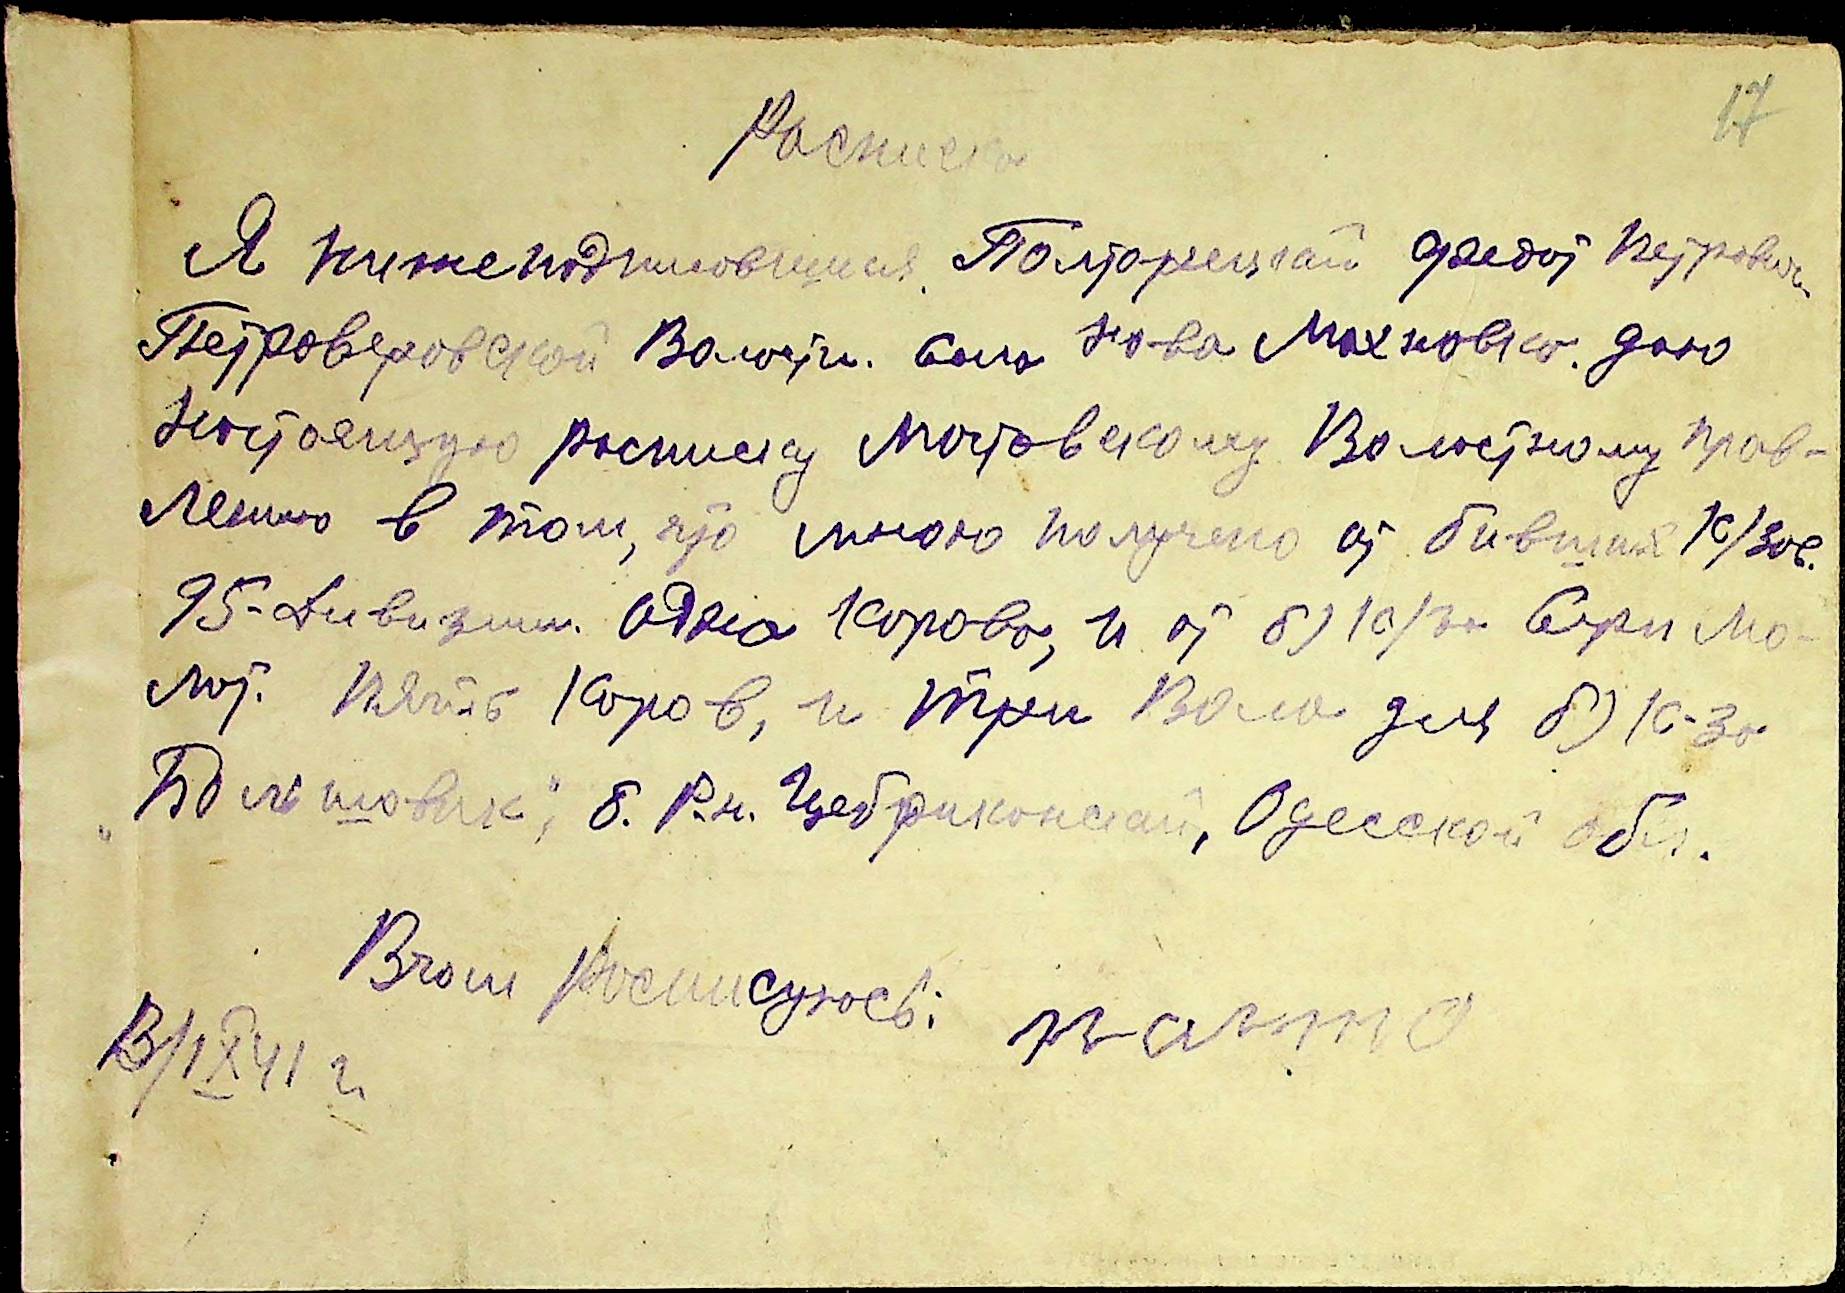 17
Росписка
Я нижеподписовшийся Полторецкай Федот Петрович
Петроверовской Волости. село Нова Маховка. даю
Настоящую росписку Мостовскому Волостному прав-
лению в том, что мною получено от бившей К/зов.
95-Дивизии. одна Корова, и от б) К/за Серп Мо-
лот. Пять Коров, и три Вола для б) К-за
"Большовик", б. Р-н. Цебриконскай, Одесской обл.
Вчом росписуюсь:
41 г.